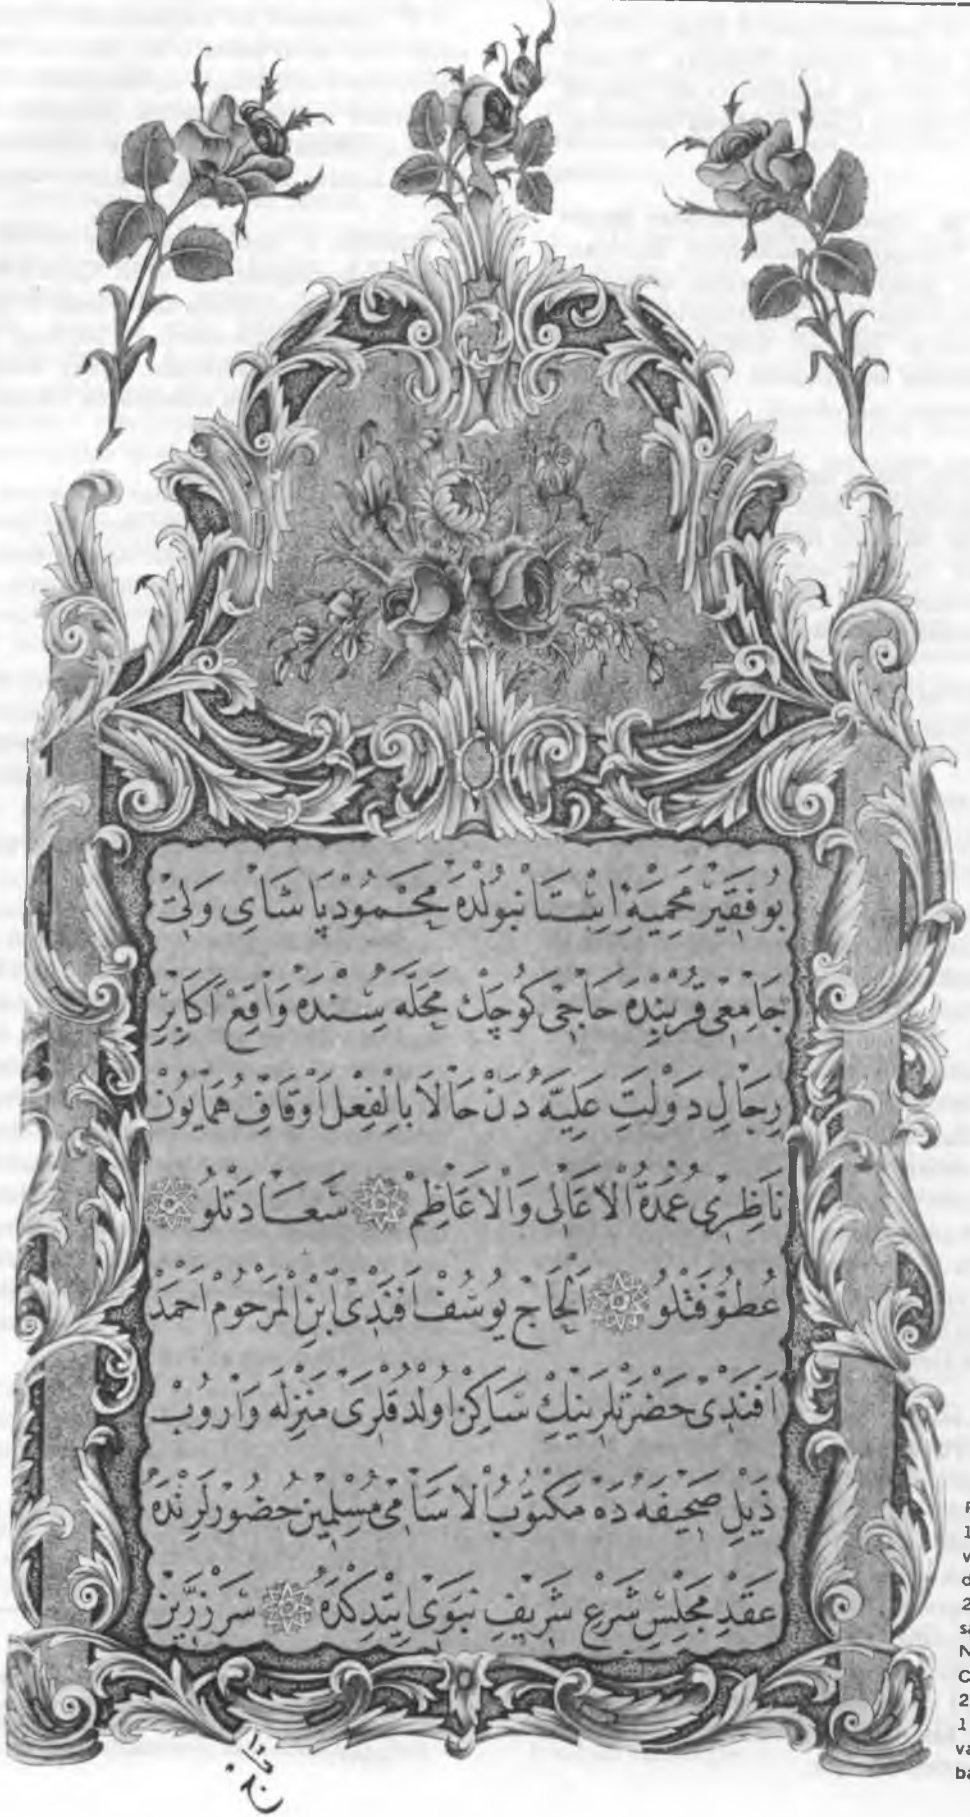 بُو فَقِيرْ مَحْمِيَّهِٔ اِسْتَانْبُولْدَهْ مَحْمُودْ پَاشَاىِ وَلِيّْ
جَامِعِى قُرْبِنْدَهْ حَاجِى كُوچَكْ مَحَلَّه سِنْدَهْ وَاقِعْ اَكَابِرِ
رِجَالِ دَوْلَتِ عَلِيَّهْ دَنْ حَالَا بِالْفِعْلْ اَوْقَافِ هُمَايُونْ
نَاظِرِى عُمْدَةُ الْاَعَالِى وَالْاَعَاظِمْ سَعَادَتْلُو
عُطُوفَتْلُو اَلْحَاجْ يُوسُفْ اَفَنْدِى اِبْنِ الْمَرْحُومْ اَحْمَدْ
اَفَنْدِى حَضْرَتْلَرِينِكْ سَاكِنْ اُولْدُقْلَرِى مَنْزِلَه وَارُوبْ
ذَيْلِ صَحِيفَه دَهْ مَكْتُوبُ الْاَسَامِى مُسْلِمِينْ حُضُورْلَرِنْدَهْ
عَقْدِ مَجْلِسِ شَرْعِ شَرِيفِ نَبَوِى اِيتْدِكْدَهْ
R
1
v
d
2
sa
N
C
2
1
va
ba